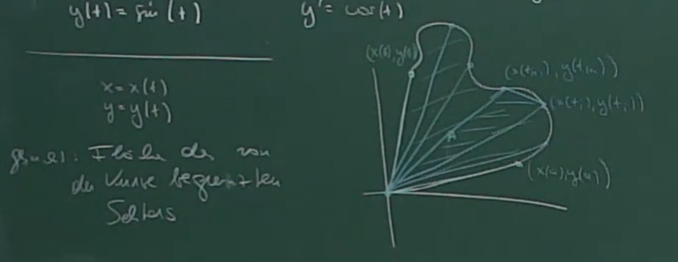 y(t) = sin(t)
y' = cos(t)
x = x(t)
y = y(t)
gesucht: Fläche des von
der Kurve begrenzten
Sektors
(x(b), y(b))
(x(tᵢ₊₁), y(tᵢ₊₁))
(x(tᵢ), y(tᵢ))
A
(x(a), y(a))